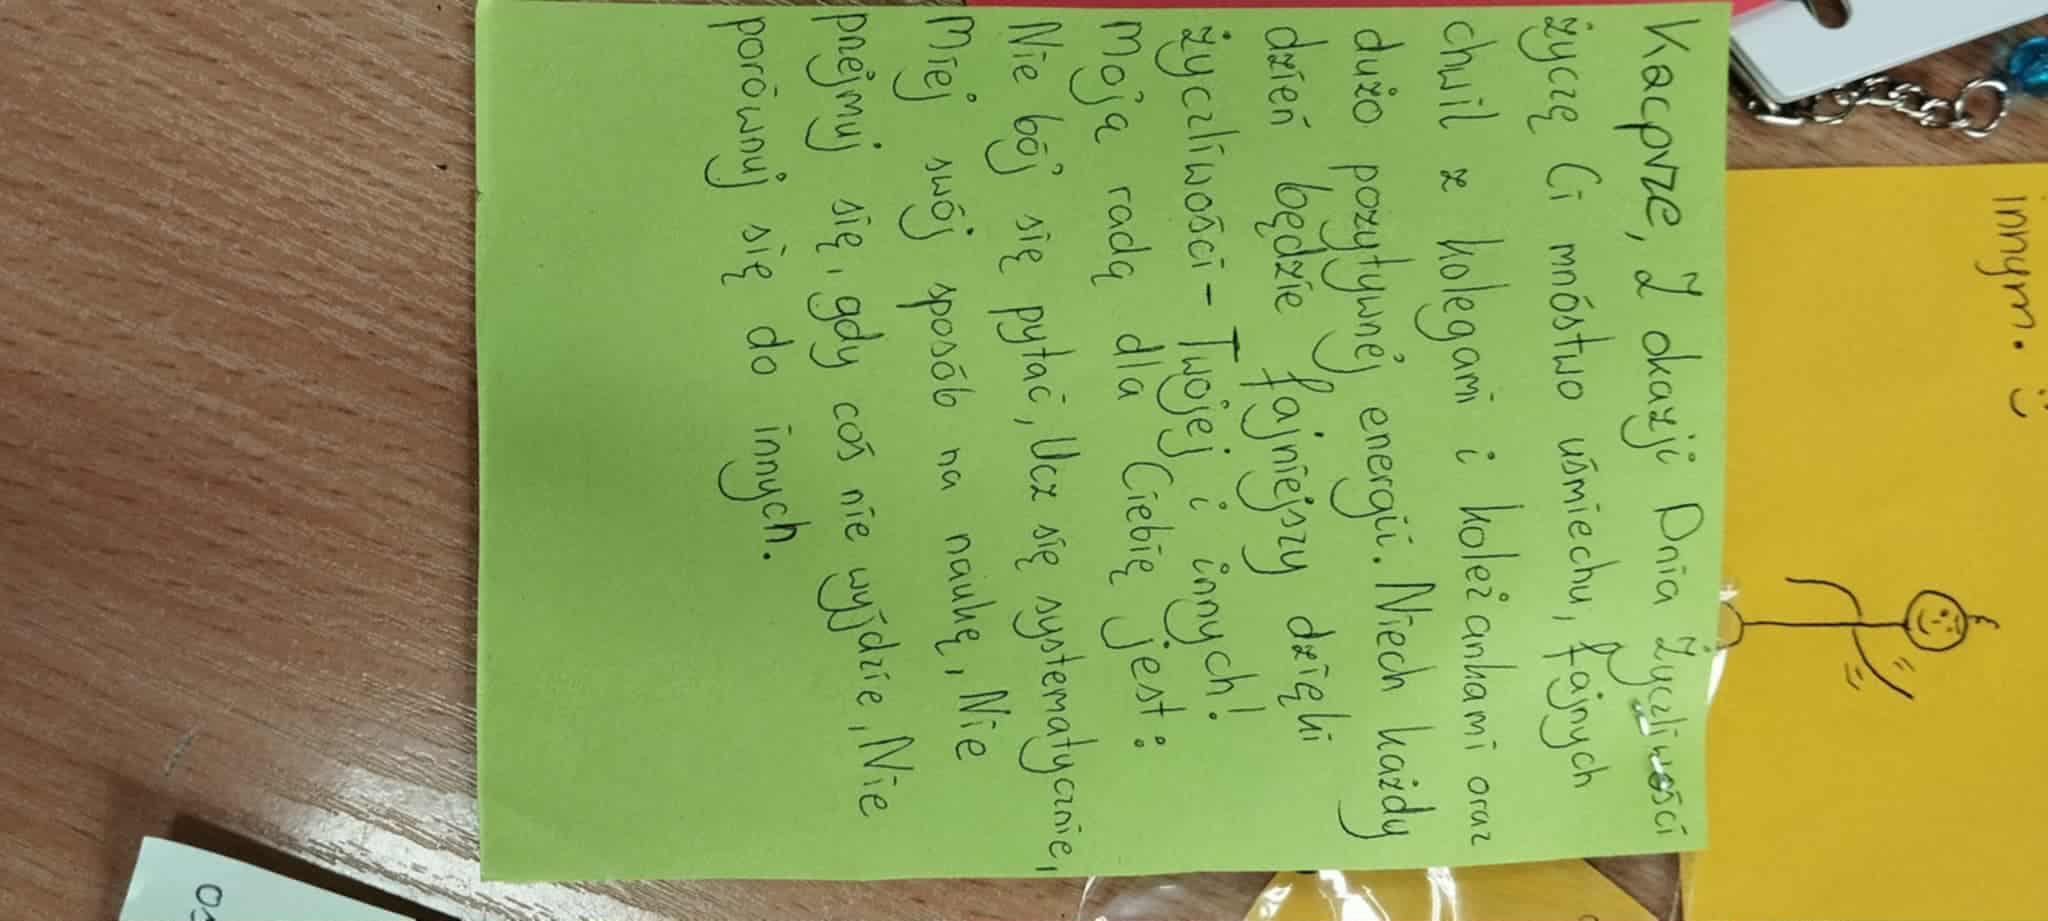 Kacprze, Z okazji Dnia Życzliwości
życzę Ci mnóstwo uśmiechu, fajnych
chwil z kolegami i koleżankami oraz
dużo pozytywnej energii. Niech każdy
dzień będzie fajniejszy dzięki
życzliwości - Twojej i innych!
Moją radą dla Ciebię jest:
Nie bój się pytać, Ucz się systematycznie,
Miej swój sposób na naukę, Nie
przejmuj się, gdy coś nie wyjdzie, Nie
porównuj się do innych.
innym. :)